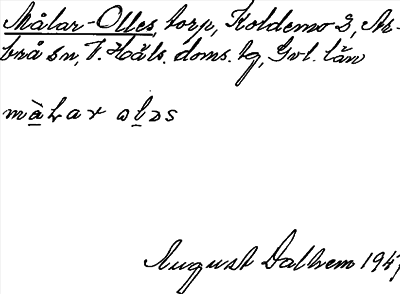 Målar-Olles, torp, Koldemo 3, Ar-
brå sn, V. Häls. doms. tg, Gvl. län
målar olₔs
August Dalhem 194